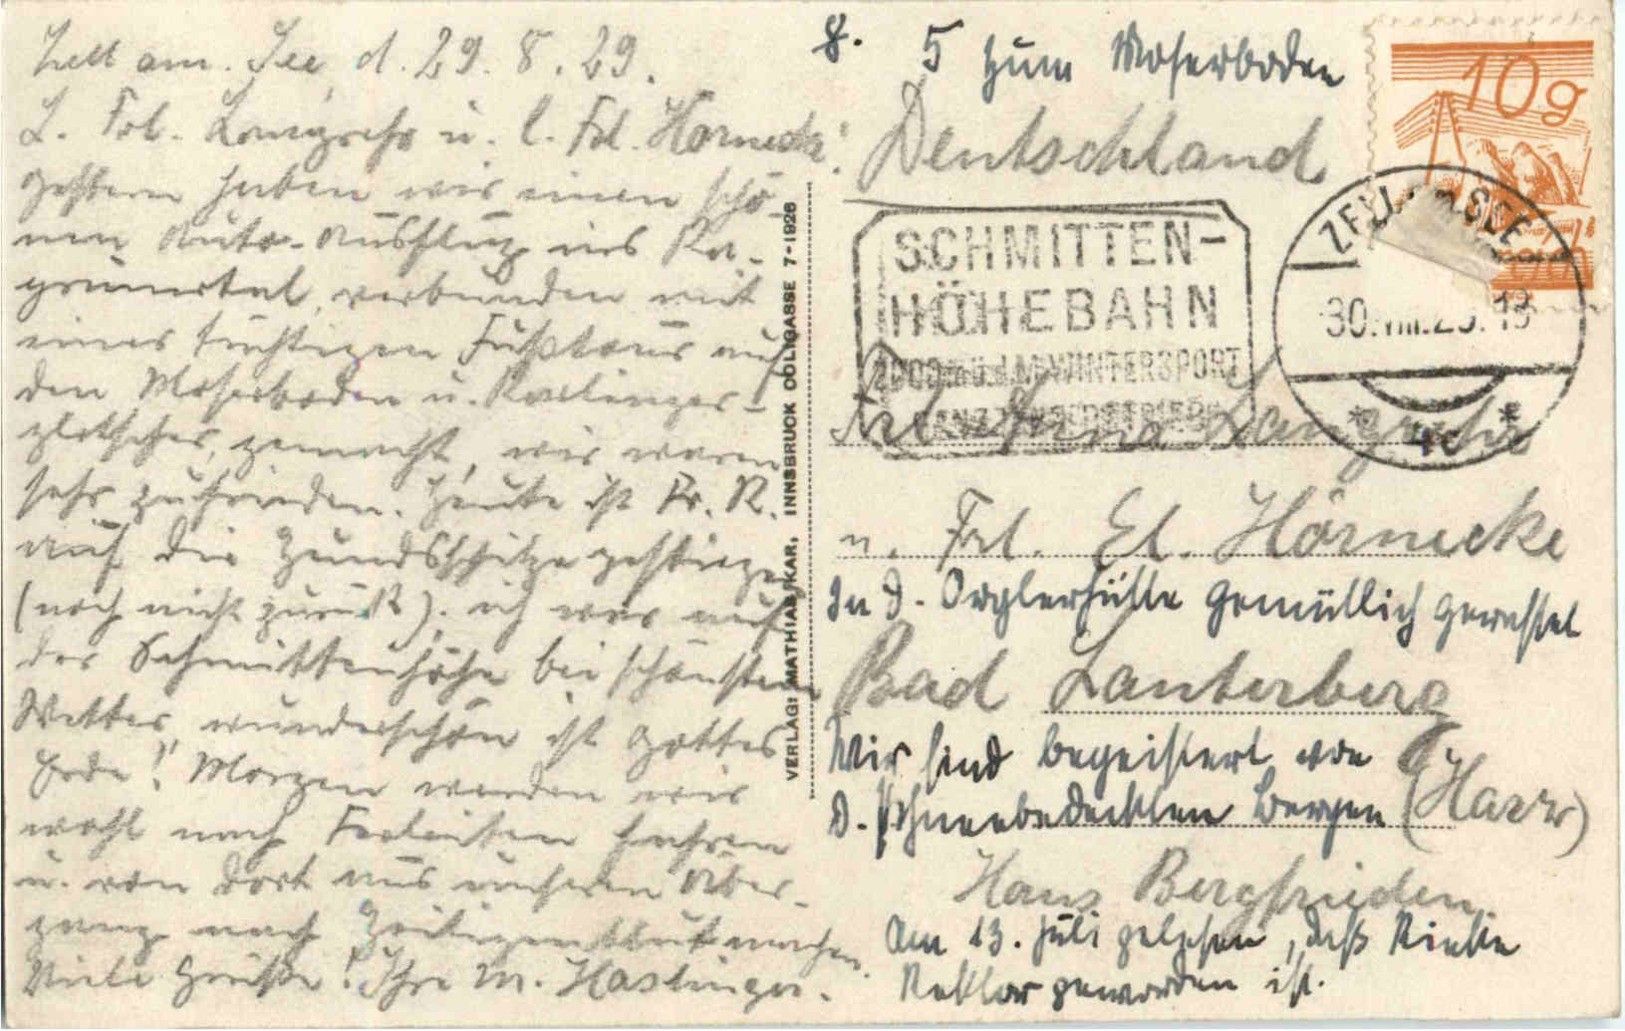 Zell am. See, d. 29. 8. 29.
L. Frl. Langrehr u. l. Frl. Hörnecke!
gestern haben wir einen schö-
nen Auto-Ausflug ins Ka-
prunertal, verbunden mit
einer tüchtigen Fußtour auf
den Moserboden u. Karlinger-
gletscher, gemacht, wir waren
sehr zufrieden. Heute ist Fr. R.
auf die Hundsspitze gestiegen
(noch nicht zurück). ich war auf
der Schmittenhöhe bei schönstem
Wetter, wunderschön ist Gottes
Erde! Morgen werden wir
wohl nach Ferleiten fahren
u. von dort aus unseren Über-
gang nach Heiligenblut machen.
Viele Grüße! Ihre M. Haslinger.
VERLAG: MATHIAS KAR, INNSBRUCK COLIGASSE 7-1928
8. 5 zum Moserboden
Deutschland
10g
SCHMITTEN-
HÖHEBAHN
2000 m ü.d.M. WINTERSPORT
ZELL am SEE
30.VIII.29.18
Frl. Langrehr
u. Frl. El. Hörnecke
In d. Orglerhütte gemütlich gerastet
Bad Lauterberg
Wir sind begeistert von
d. schneebedeckten Bergen (Harz)
Haus Bergfrieden.
Am 13. Juli gelesen, daß Rieke
Rektor geworden ist.